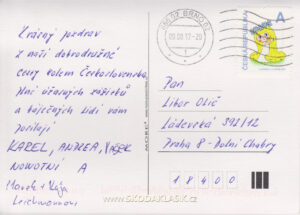 Krásný pozdrav
z naší dobrodružné
cesty kolem Československa
plné úžasných zážitků
a báječných lidí vám
posílají
KAREL, ANDREA,
NOVOTNÍ A
Marek + Kája
602 02 BRNO 2
09.08.17-20
A
Pan
Libor Olič
Ládevská 392/12
Praha 8 - Dolní Chabry
18400
www.SKODAKLASIK.cz